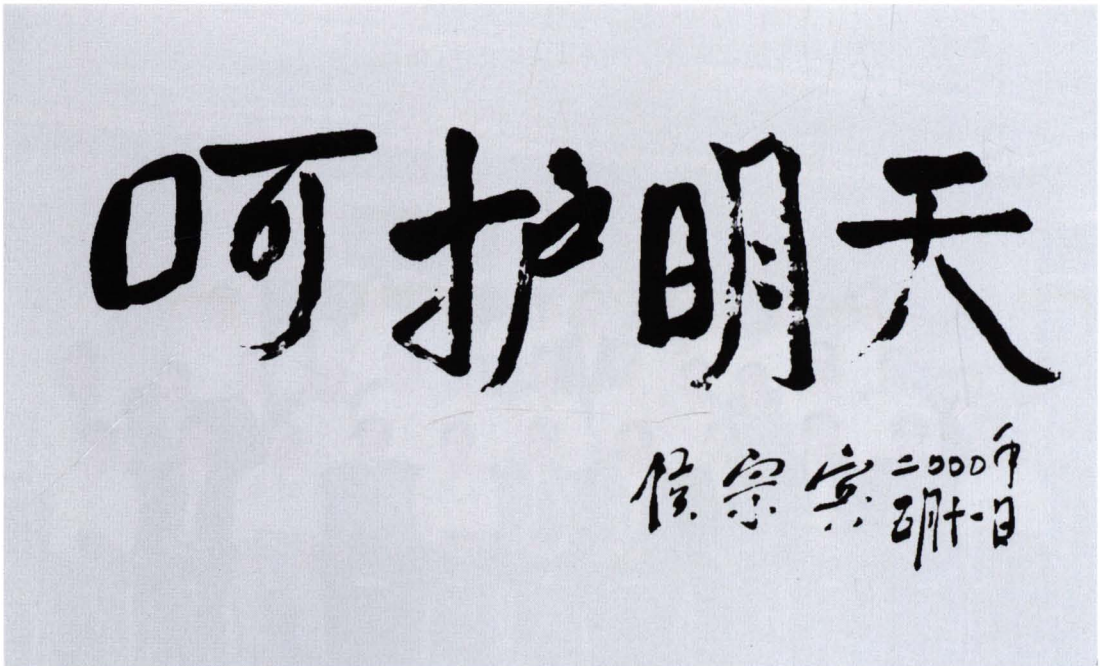 呵护明天
侯宗宾 二000年
五月十一日